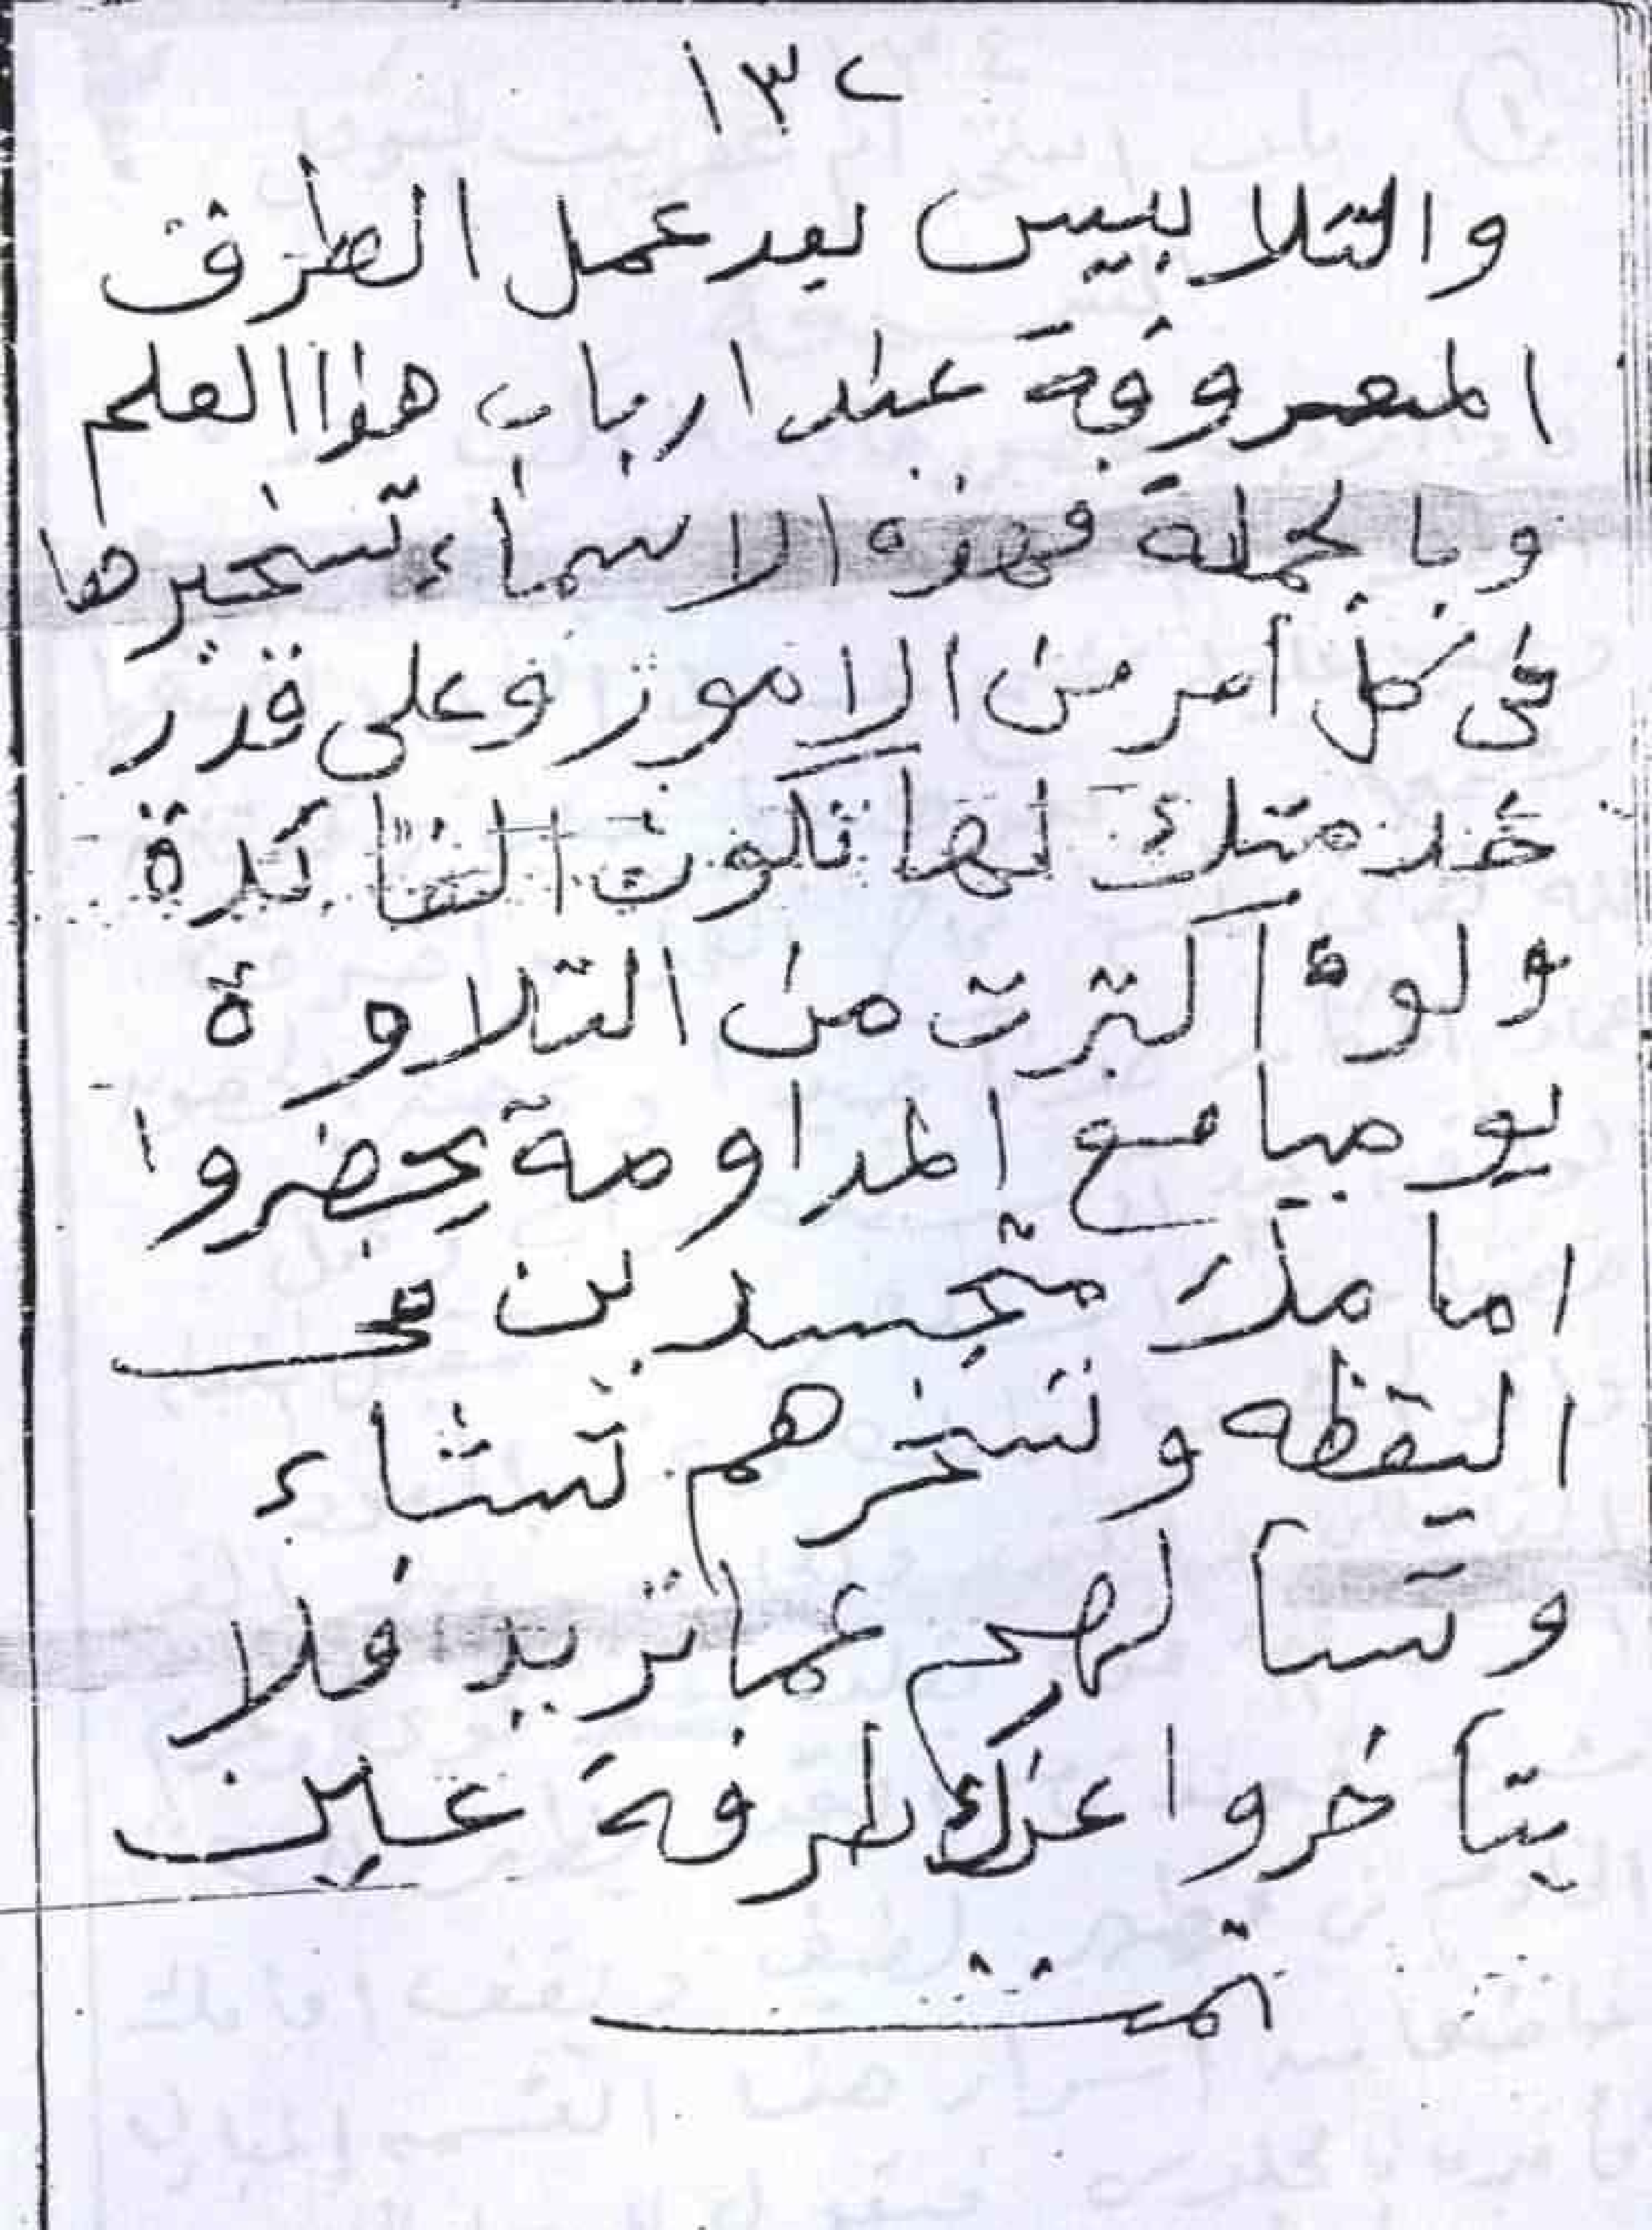 ١٣٢
والتلابيس بعد عمل الطرق
المعروفة عند ارباب هذا العلم
وبالجملة فهذه الاسماء تسخيرها
فى كل أمر من الامور وعلى قدر
خدمتك لها تكون الفائدة
ولو أكثرت من التلاوة
يوميا مع المداومة يحضروا
امامك متجسدين فى
اليقظه وتسخرهم تشاء
وتسألهم عما تريد فلا
يتأخروا عنك طرفة عين
تمت